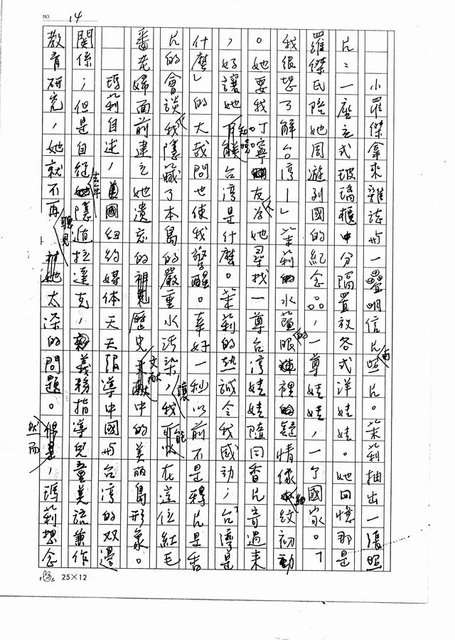 NO 14
小羅傑拿來雜誌與一疊明信片。茱莉抽出一張照
片:一座立式玻璃櫃中分隔置放各式洋娃娃。她回憶那是
羅傑氏陸她周遊列國的紀念品,一尊娃娃,一個國家。「
我很想了解台灣!」茱莉的水藍眼裡的疑情像水紋初動
。她要我叮嚀友為她尋找一尊台灣娃娃隨同香片寄過來
,好讓她知曉台灣是什麼。茱莉的熱誠令我感動;台灣是
什麼」的大哉問也使我警醒。幸好一利以前不是鴉片是香
片的會談我隱藏了本島的嚴重水污染,讓我能在這位紅毛
番老婦面前建立她遺忘的歷史文獻中的美麗島形象。
瑪莉自述,去年紐約媒體天天報導中國與台灣的双邊
關係;但是自從隱遁拉達克,義務指導兒童美語兼作
教育研究,她就不再聽見太深的問題。然而,瑪莉想念
25×12